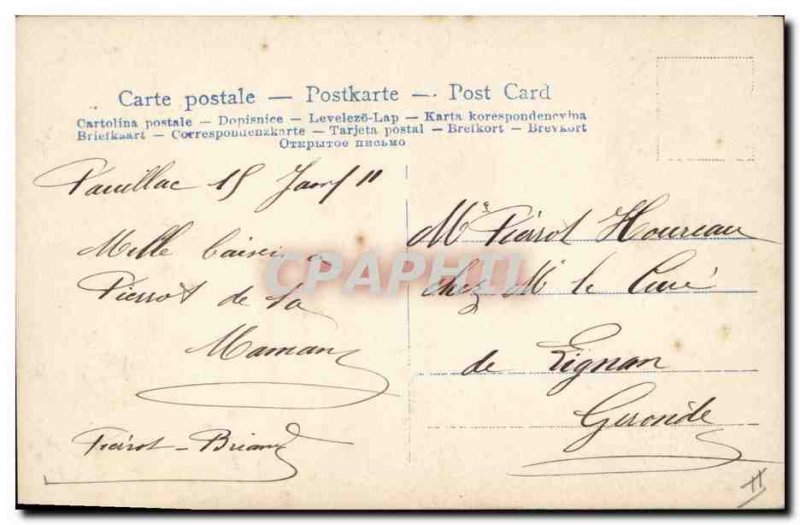 Carte postale — Postkarte — Post Card
Cartolina postale — Dopisnice — Levelező-Lap — Karta korespondencyjna
Briefkaart — Correspondenzkarte — Tarjeta postal — Brefkort — Brevkort
Открытое письмо
Pauillac 15 Janv 11
Mille baisers a
Pierrot de sa
Maman
Pierrot - Briand
Mr Pierrot Houreau
chez Mr le Curé
de Lignan
Gironde
CPAPHIL